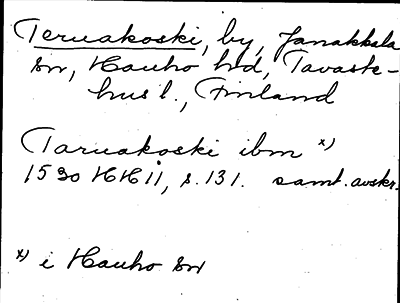 Teruakoski, by, Janakkala
sn, Hauho hd, Tavaste-
hus l., Finland
Taruakoski ibm x)
1530 HH II, s. 131. samt. avskr.
x) i Hauho sn